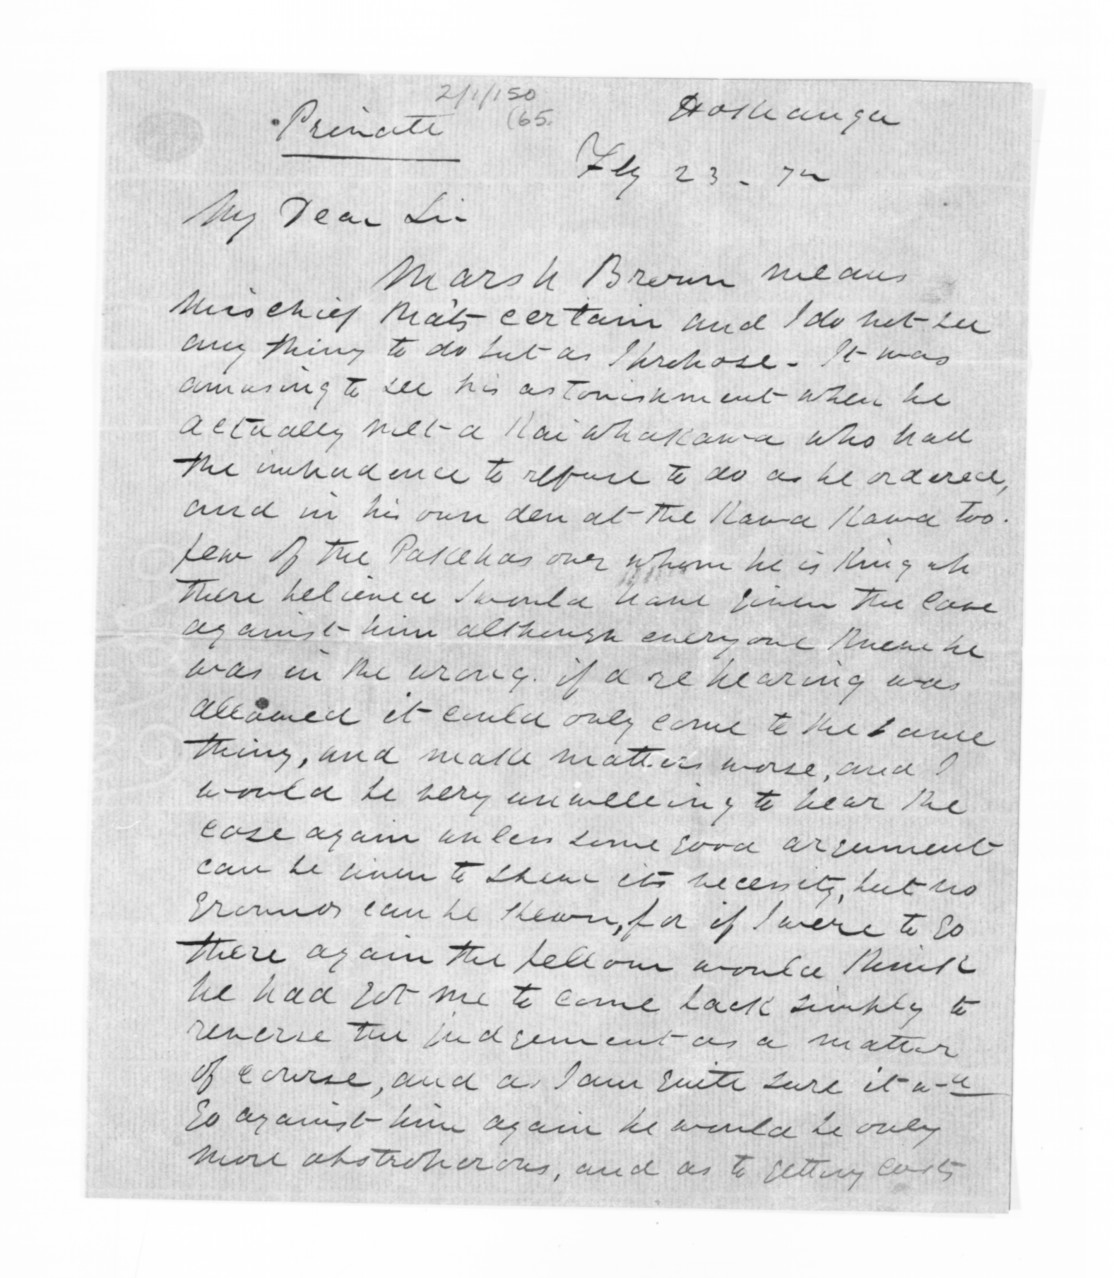 2/1/150
(65.
Private
Hokianga
Feby 23 - 72
My Dear Sir
Marsh Brown means
mischief that's certain and I do not see
any thing to do but as I propose - It was
amusing to see his astonishment when he
actually met a Kai Whakawa who had
the impudence to refuse to do as he ordered,
and in his own den at the Kawa Kawa too.
few of the Pakehas over whom he is King up
there believed I would have given the case
against him although every one knew he
was in the wrong. if a re hearing was
allowed it could only come to the same
thing, and make matters worse, and I
would be very unwilling to hear the
case again unless some good argument
can be given to shew its necessity, but no
grounds can be shewn, for if I were to go
there again the fellow would think
he had got me to come back simply to
reverse the judgement as a matter
of course, and as I am quite sure it wd
go against him again he would be only
more obstroperous, and as to getting costs